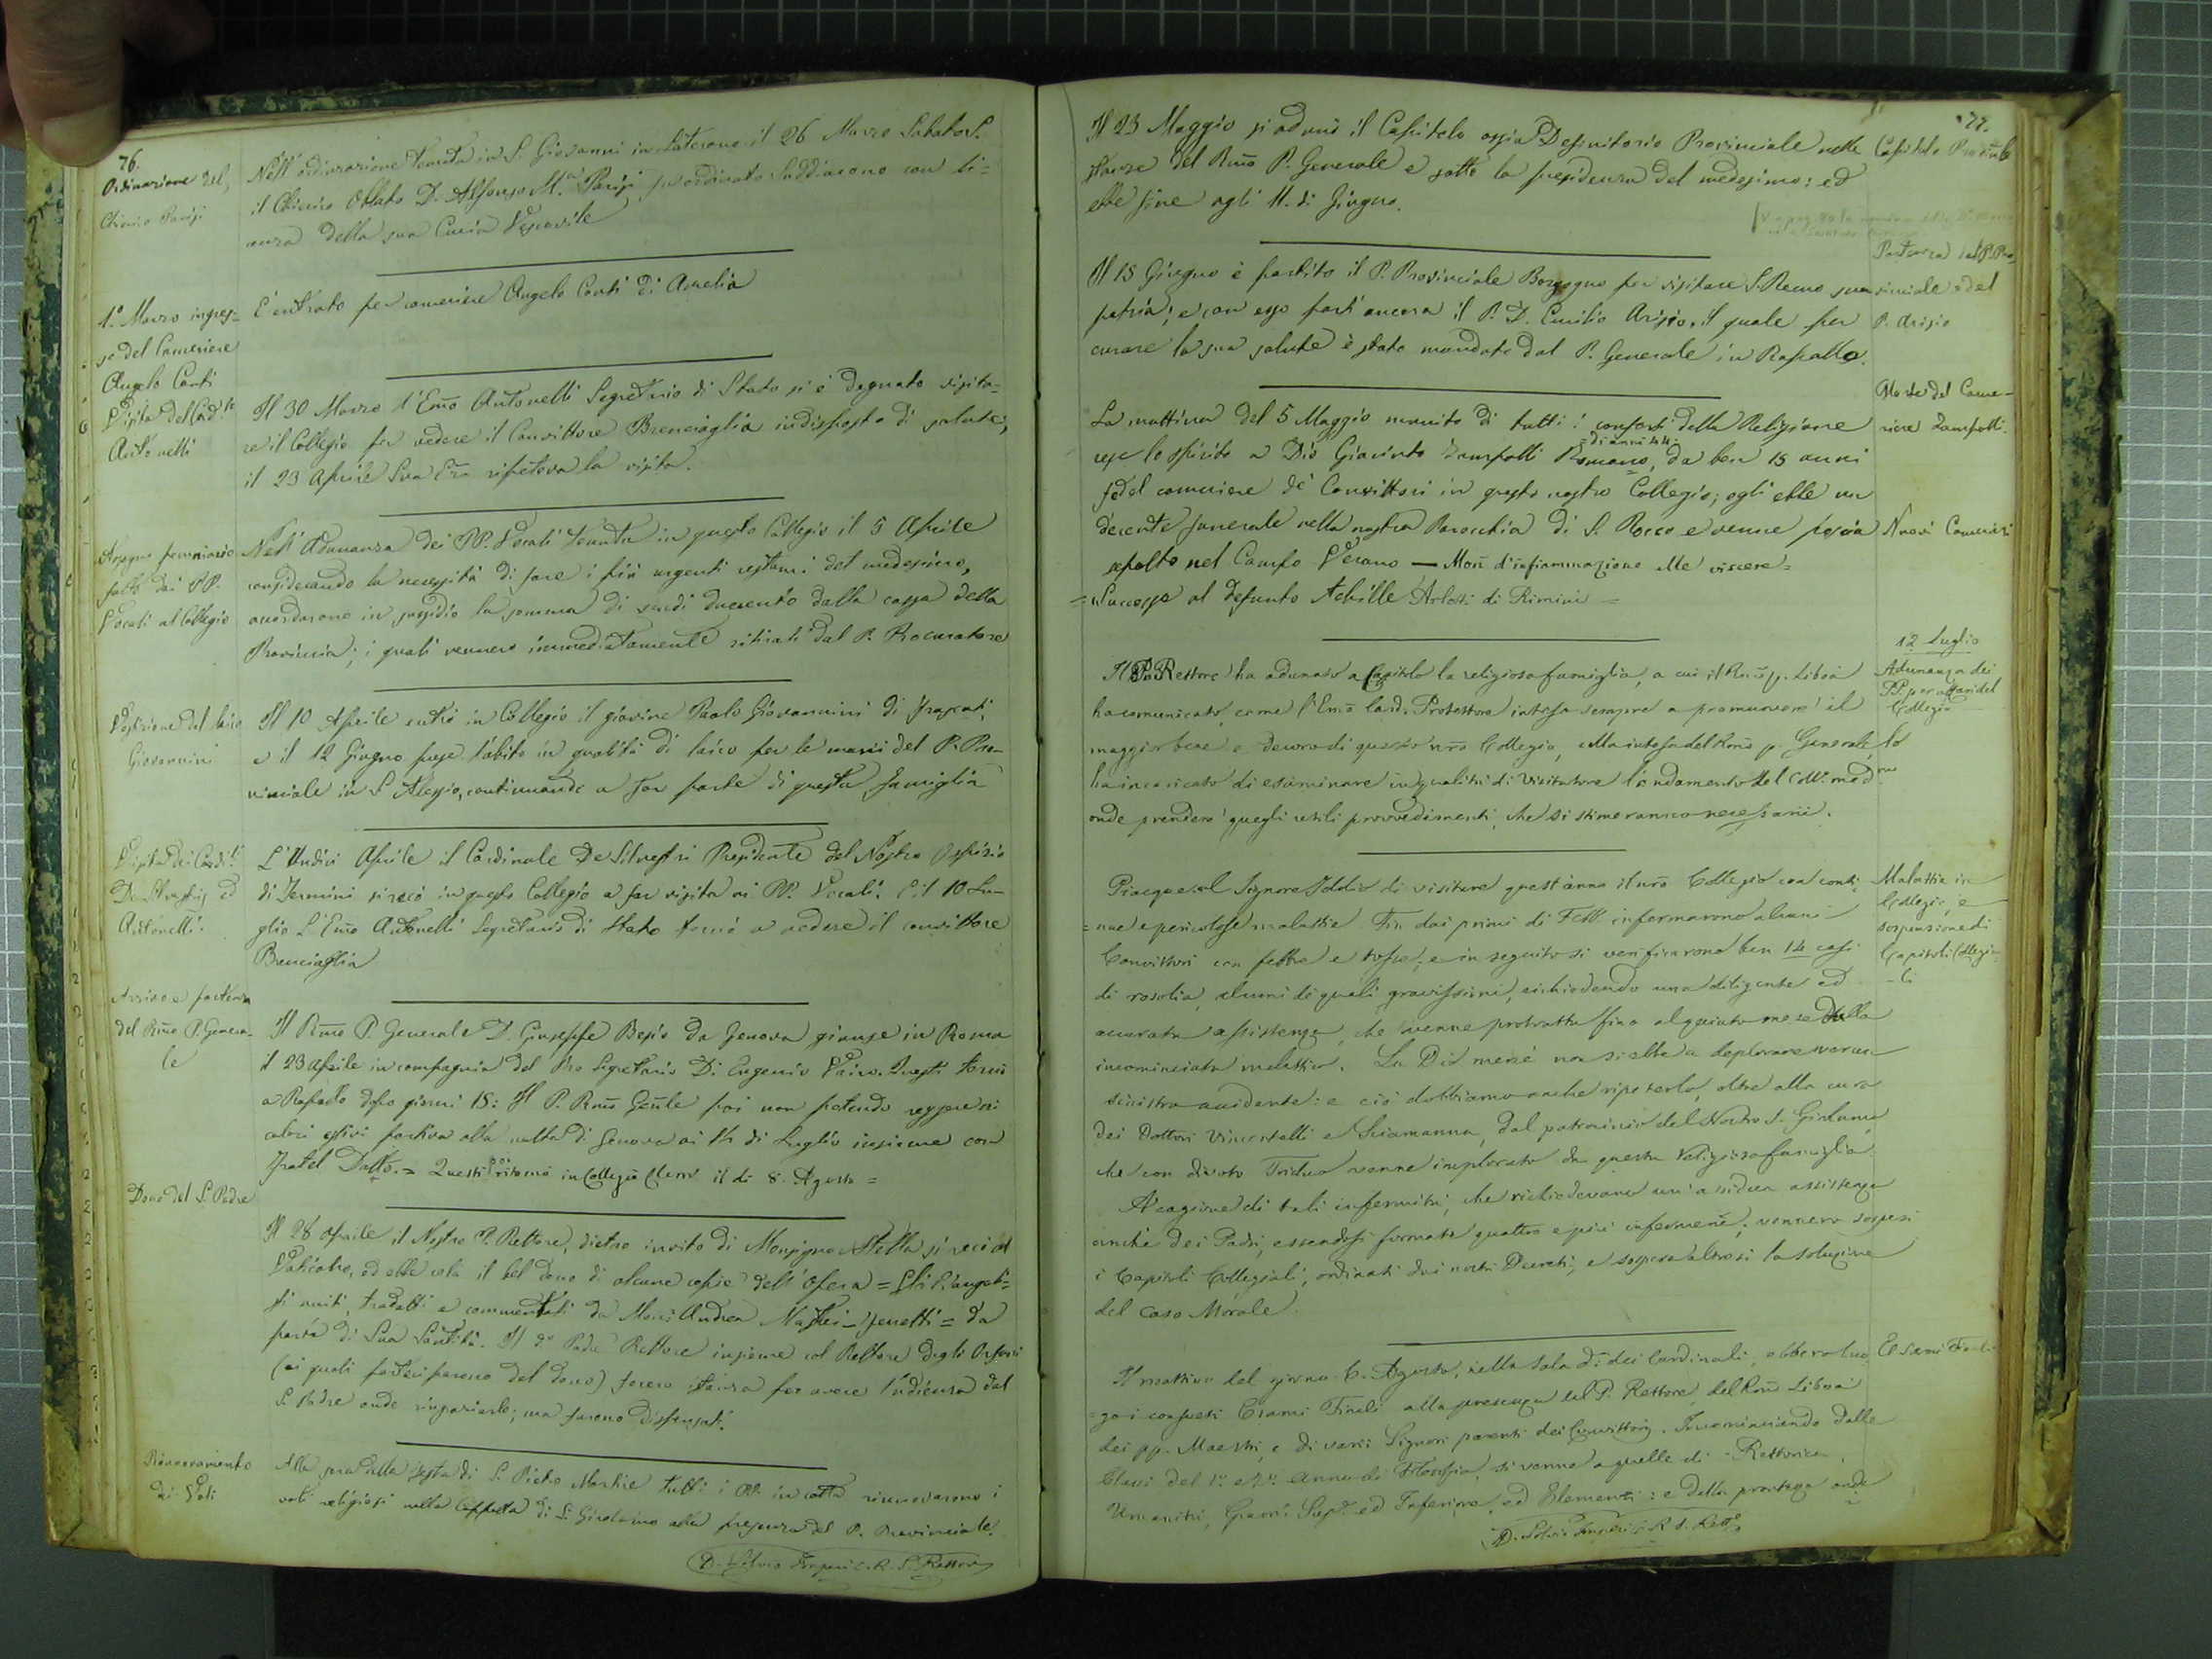 76.
Ordinazione del
Chierico Parisi
Nell'ordinazione tenuta in S. Giovanni in Laterano il 26 Marzo Sabato S.
il Chierico Oblato D. Alfonso M.a Parisi fu ordinato Suddiacono con li-
cenza della sua Curia Vescovile
1.° Marzo ingres-
so del Cameriere
Angelo Conti
È entrato per cameriere Angelo Conti di Amelia
Visita del Card.le
Antonelli
Il 30 Marzo l'Emo Antonelli Segretario di Stato si è degnato visita-
re il Collegio per vedere il Convittore Brenciaglia indisposto di salute;
il 23 Aprile Sua Em̃a ripeteva la visita.
Assegno pecuniario
fatto dai PP.
Vocali al Collegio
Nell'Adunanza dei PP. Vocali tenuta in questo Collegio il 5 Aprile
considerando la necessità di fare i più urgenti restauri del medesimo,
accordarono in sussidio la somma di scudi duecento dalla cassa della
Provincia; i quali vennero immediatamente ritirati dal P. Procuratore
Vestizione del laico
Giovannini
Il 10 Aprile entrò in Collegio il giovine Paolo Giovannini di Frascati,
e il 12 Giugno prese l'abito in qualità di laico per le mani del P. Pro-
vinciale in S. Alessio, continuando a far parte di questa famiglia
Visita dei Card.li
De Silvestri ed
Antonelli.
L'Undici Aprile il Cardinale De Silvestri Presidente del Nostro Ospizio
di Termini si recò in questo Collegio a far visita ai PP. Vocali. E il 10 Lu-
glio L'Emo Antonelli Segretario di Stato tornò a vedere il convittore
Brenciaglia
Arrivo e partenza
del Rm̃o P. Genera-
le
Il Rm̃o P. Generale D. Giuseppe Besio da Genova giunse in Roma
il 23 Aprile in compagnia del Pro Segretario D. Eugenio Vairo. Questi tornò
a Rapallo dopo giorni 15: Il P. Rm̃o Gen̄le poi non potendo reggere ai
calori estivi partiva alla volta di Genova ai 14 di Luglio insieme con
Fratel Dallo. = Questi poi ritornò in Collegio Clem̃ il dì 8. Agosto =
Dono del S. Padre
Il 28 Aprile il Nostro P. Rettore, dietro invito di Monsignor Stella si recò al
Vaticano, ed ebbe colà il bel dono di alcune copie dell'Opera = Gli Evangeli-
sti uniti, tradotti e commentati da Mons. Andrea Mastai-Ferretti = da
parte di Sua Santità. Il d.° Padre Rettore insieme col Rettore degli Orfani
(ai quali parteciparono del dono) fecero istanza per avere l'udienza dal
S. Padre onde ringraziarlo; ma furono dispensati.
Rinnovamento
dei Voti
Alla sera della festa di S. Pietro Martire tutti i PP. in cotta rinnovarono i
voti religiosi nella Cappella di S. Girolamo alla presenza del P. Provinciale.
D. Silvio Imperi C. R. S. Rettore
77.
Il 23 Maggio si adunò il Capitolo ossia Definitorio Provinciale nelle
stanze del Rm̃o P. Generale e sotto la presidenza del medesimo: ed
ebbe fine agli 11. di Giugno.
Capitolo Provin̄le
Partenza del P. Pro-
vinciale e del
P. Arisio
Il 15 Giugno è partito il P. Provinciale Borgogno per visitare S. Remo sua
patria; e con esso partì ancora il P. D. Emilio Arisio, il quale per
curare la sua salute è stato mandato dal P. Generale in Rapallo.
Morte del Came-
riere Zampalli.
La mattina del 5 Maggio munito di tutti i conforti della Religione
= di anni 44.
rese lo spirito a Dio Giacinto Zampalli Romano, da ben 15 anni
fedel cameriere de' Convittori in questo nostro Collegio; egli ebbe un
decente funerale nella nostra Parocchia di S. Rocco e venne poscia
sepolto nel Campo Verano — Morì d'infiammazione alle viscere =
Nuovi Camerieri
= Successe al defunto Achille Arlotti di Rimini =
12 Luglio
Adunanza dei
PP. per affari del
Collegio
Il P. Rettore ha adunato a Capitolo la religiosa famiglia, a cui il Rm̃o p. Libois
ha comunicato, come l'Em̃o Card. Protettore inteso sempre a promuovere il
maggior bene e decoro di questo nr̃o Collegio, colla intesa del Rm̃o p. Generale, lo
ha incaricato di esaminare in qualità di Visitatore l'andamento del Coll. med.mo
onde prendere quegli utili provvedimenti, che si stimeranno necessarii.
Malattie in
Collegio, e
sospensione di
Capitoli Collegia-
li
Piacque al Signore Iddio di visitare quest'anno il nr̃o Collegio con conti-
=nue e pericolose malattie. Fin dai primi di Febb. infermarono alcuni
Convittori con febbre e tosse; e in seguito si verificarono ben 14 casi
di rosolia, alcuni de' quali gravissimi, richiedendo una diligente ed
accurata assistenza, che venne protratta fino al quinto mese dalla
incominciata malattia. La Dio mercé non si ebbe a deplorare verun
sinistro accidente: e ciò dobbiamo anche ripeterlo, oltre alla cura
dei Dottori Vincentelli e Sciamanna, dal patrocinio del Nostro S. Girolamo,
che con divoto Triduo venne implorato da questa religiosa famiglia.
A cagione di tali infermità, che richiedevano un'assidua assistenza
anche dei Padri, essendosi formate quattro e più infermerie; vennero sospesi
i Capitoli Collegiali, ordinati dai nostri Decreti, e sospesa altresì la soluzione
del Caso Morale.
Esami Finali
Il mattino del giorno 6. Agosto, nella Sala d.a dei Cardinali, ebbero luo-
=go i consueti Esami Finali alla presenza del P. Rettore, del Rm̃o Libois
dei pp. Maestri, e di varii Signori parenti dei Convittori. Incominciando dalle
Classi del 1.° e 2.° Anno di Filosofia, si venne a quelle di Rettorica,
Umanità, Gram. Sup.e ed Inferiore, ed Elementi: e della prontezza onde
D. Silvio Imperi C. R. S. Rett.e